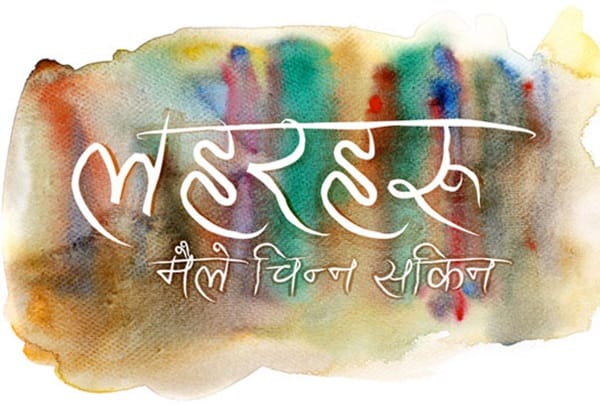 लहरहरू
मैले चिन्न सकिन